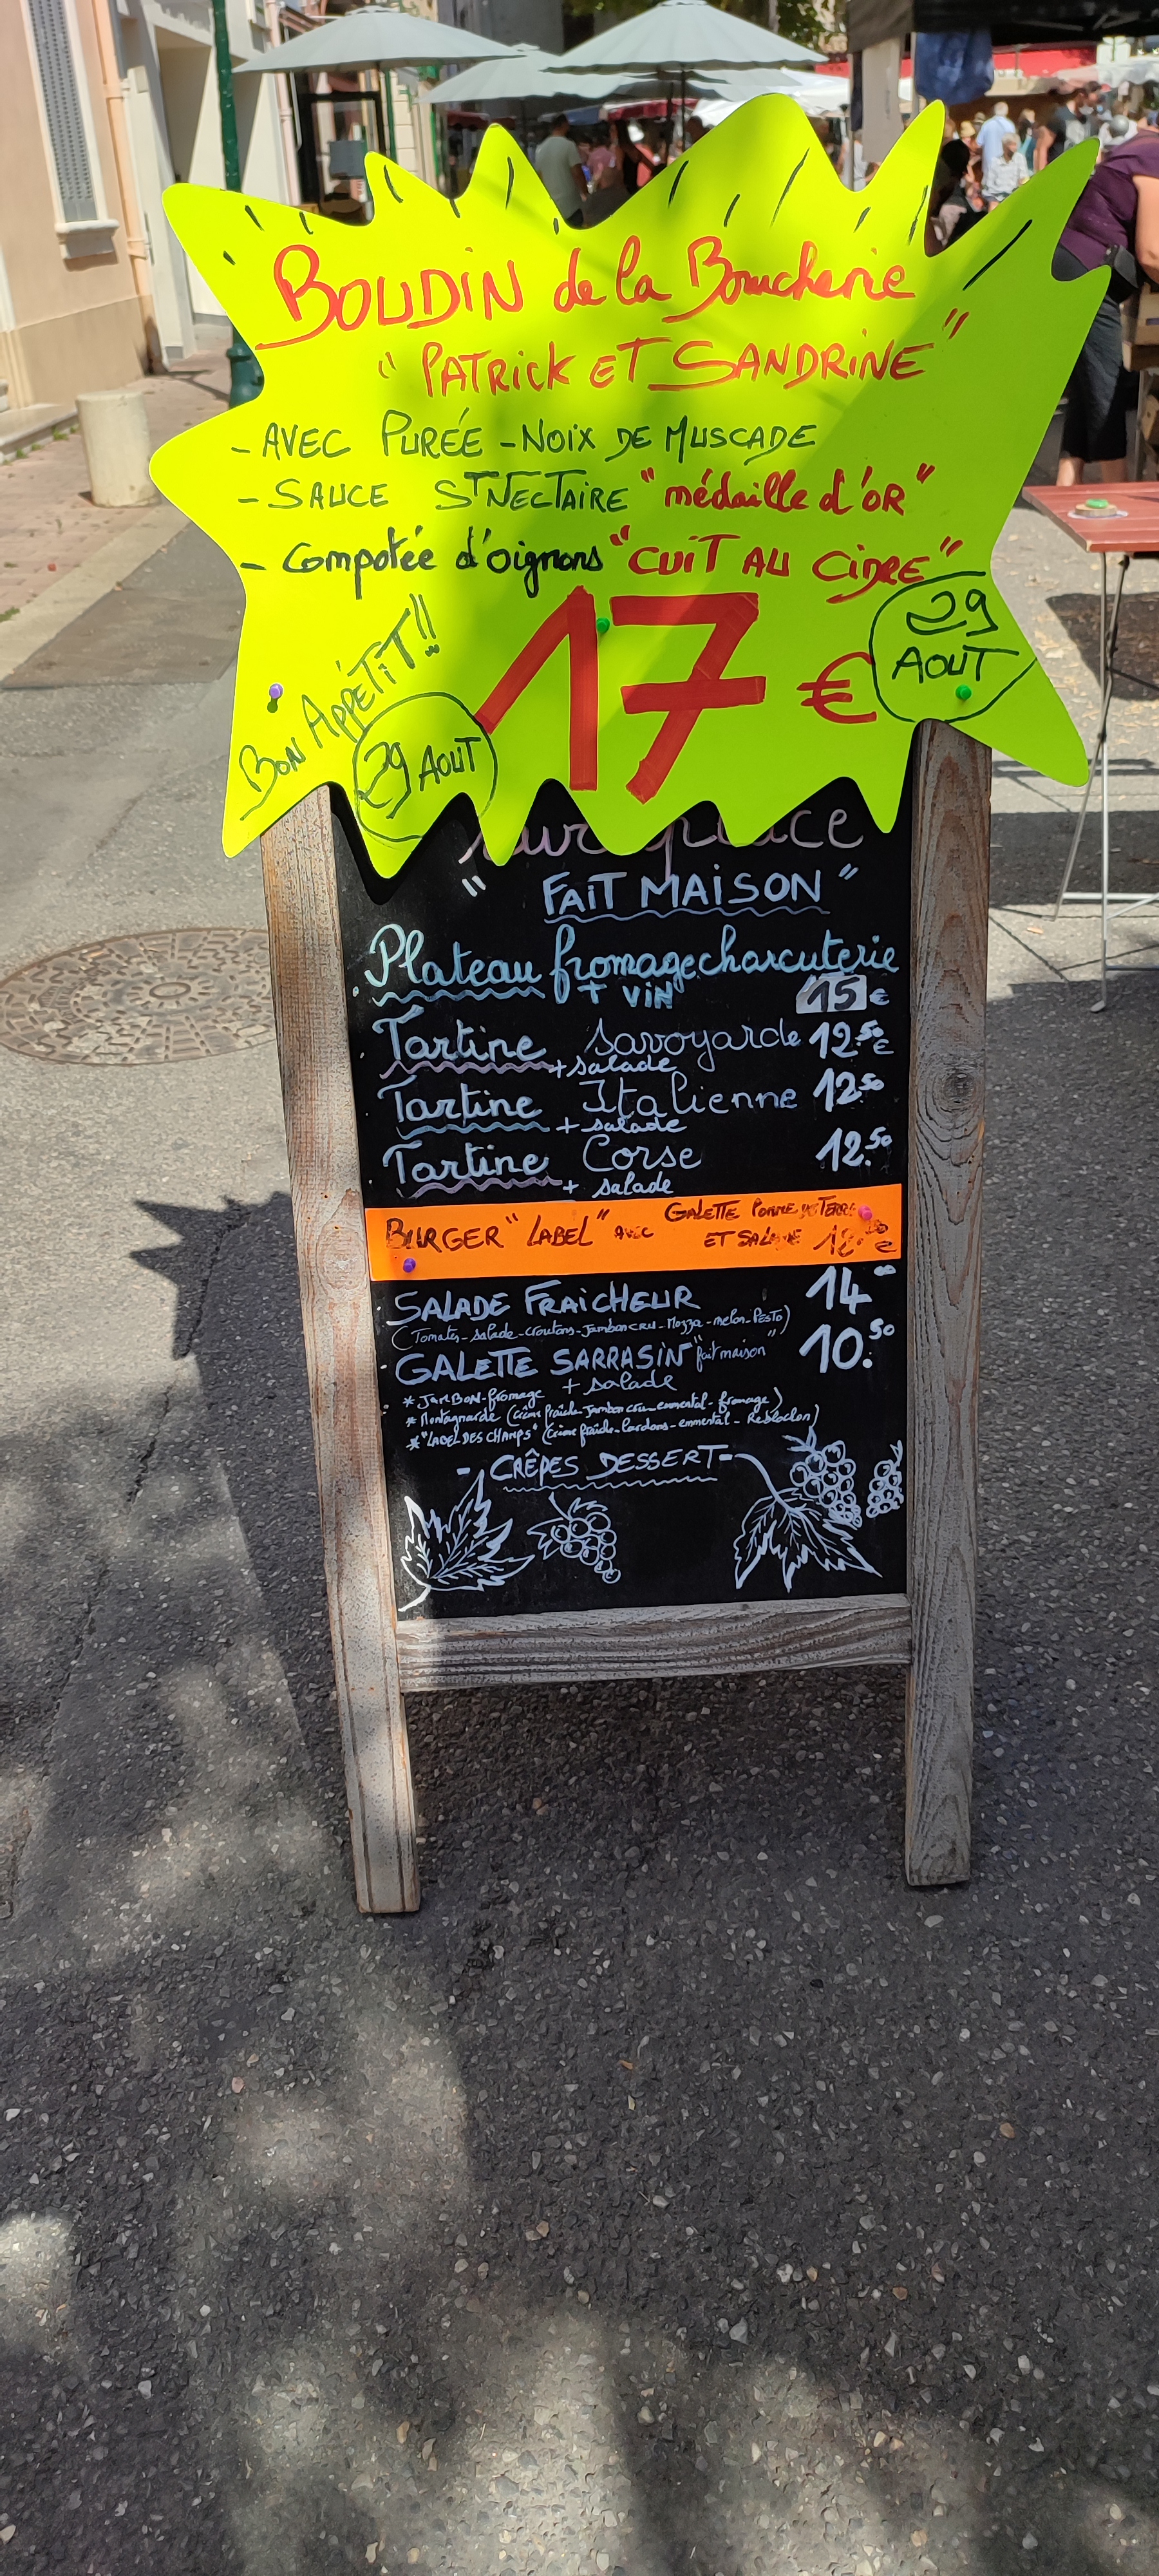 BOUDIN de la Boucherie
" PATRICK ET SANDRINE "
- AVEC PURÉE - NOIX DE MUSCADE
- SAUCE ST NECTAIRE "médaille d'OR"
- Compotée d'oignons "CUIT AU CIDRE"
BON APPÉTIT!!
17 €
29 AOUT
29
AOUT
sur place
" FAIT MAISON "
Plateau fromage charcuterie
+ VIN 15 €
Tartine Savoyarde 12.50 €
+ salade
Tartine Italienne 12.50
+ salade
Tartine Corse 12.50
+ salade
BURGER "LABEL" AVEC GALETTE POMME DE TERRE
ET SALADE
SALADE FRAICHEUR 14.00
(Tomates - salade - croutons - Jambon CRU - Mozza - melon - PESTO)
GALETTE SARRASIN "fait maison" 10.50
+ salade
* JAMBON - fromage
* Montagnarde (crème fraîche - Jambon cru - emmental - fromage)
* "LABEL DES CHAMPS" (crème fraîche - lardons - emmental - Reblochon)
- CRÊPES DESSERT -